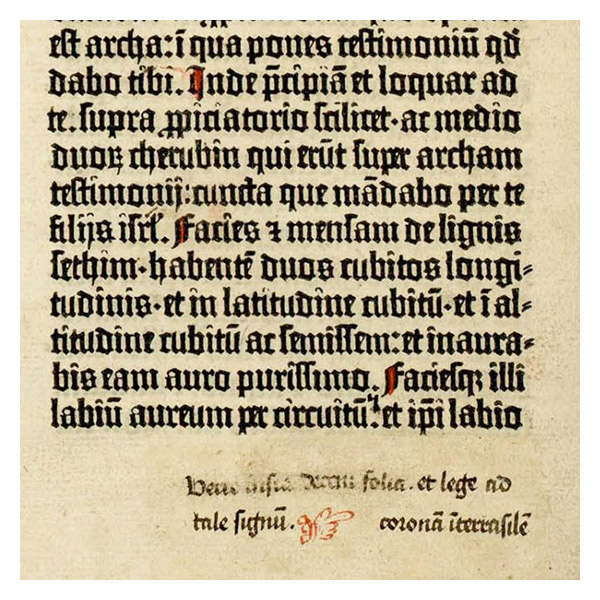 est archa: ī qua pones testimoniū qd̄
dabo tibi. Inde p̄cipiā et loquar ad
te. supra ꝓpiciatorio scilicet· ac medio
duoꝝ cherubin qui erūt super archam
testimonij: cuncta que mādabo per te
filijs isrl̄. Facies ⁊ mensam de lignis
sethim· habentē duos cubitos longi-
tudinis· et in latitudine cubitū· et ī al-
titudine cubitū ac semissem: et inaura-
bis eam auro purissimo. Faciesqꝫ illi
labiū aureum per circuitū: et ip̄i labio
folia. et lege ad
tale signū. coronā īterrasilē